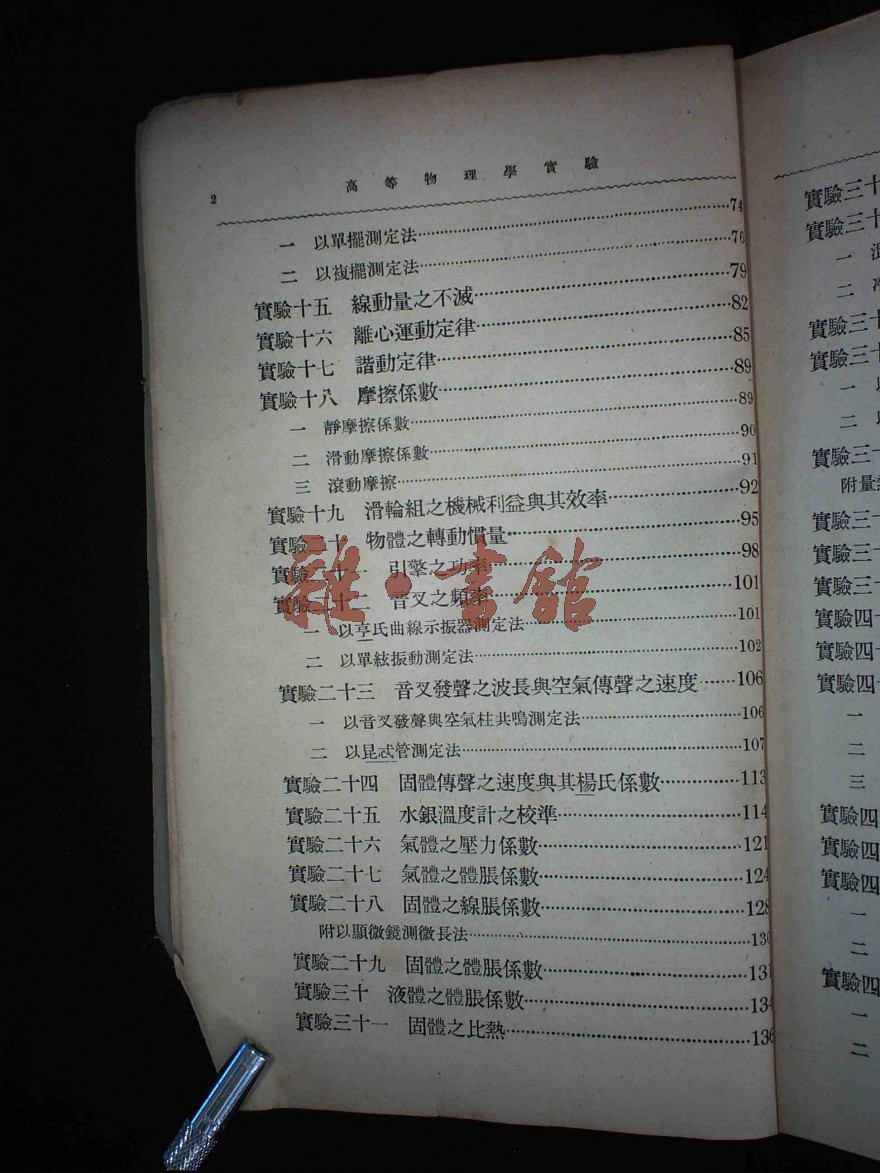 2
高等物理學實驗
一 以單擺測定法……74
二 以複擺測定法……76
實驗十五 線動量之不滅……79
實驗十六 離心運動定律……82
實驗十七 諧動定律……85
實驗十八 摩擦係數……89
一 靜摩擦係數……89
二 滑動摩擦係數……90
三 滾動摩擦……91
實驗十九 滑輪組之機械利益與其效率……92
實驗二十 物體之轉動慣量……95
實驗二十一 引擎之功率……98
實驗二十二 音叉之頻率……101
雜·書館
一 以亨氏曲線示振器測定法……101
二 以單絃振動測定法……102
實驗二十三 音叉發聲之波長與空氣傳聲之速度……106
一 以音叉發聲與空氣柱共鳴測定法……106
二 以昆忒管測定法……107
實驗二十四 固體傳聲之速度與其楊氏係數……113
實驗二十五 水銀溫度計之校準……114
實驗二十六 氣體之壓力係數……121
實驗二十七 氣體之體脹係數……124
實驗二十八 固體之線脹係數……128
附以顯微鏡測微長法……130
實驗二十九 固體之體脹係數……131
實驗三十 液體之體脹係數……134
實驗三十一 固體之比熱……136
實驗三十
實驗三十
一
二
實驗三十
實驗三十
一
二
實驗三
附量
實驗三十
實驗三十
實驗三十
實驗四十
實驗四十
實驗四十
一
二
三
實驗四
實驗四
實驗四
一
二
實驗四
一
二